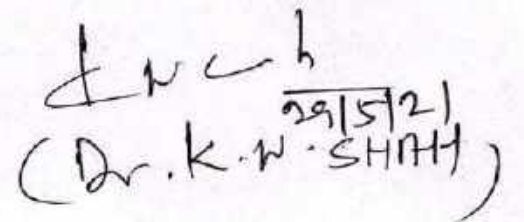 29|5|21
(Dr. K. N. SHAH)